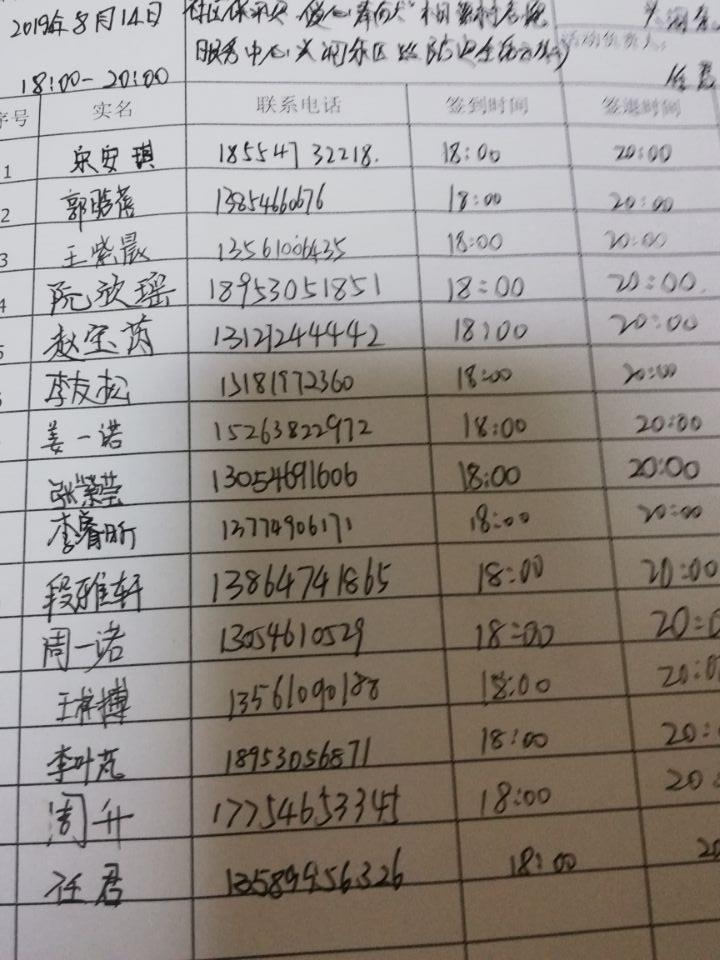 2019年8月14日
服务中心
18:00-20:00
序号 实名 联系电话 签到时间 签退时间
1 宋安琪 18554732218. 18:00 20:00
2 郭 18:00 20:00
3 王紫晨 13561006435 18:00 20:00
4 阮欣瑶 18953051851 18:00 20:00.
5 赵宝茵 18:00 20:00
李友松 13181972360 18:00 20:00
姜一诺 15263822972 18:00 20:00
张紫莹 13054691606 18:00 20:00
李睿昕 13774906171 18:00 20:00
段雅轩 13864741865 18:00 20:00
周一诺 13054610529 18:00 20:0
王 13561090188 18:00 20:0
李叶芃 18953056871 18:00 20:
周升 17754653345 18:00 20:
任君 13589956326 18:00 20